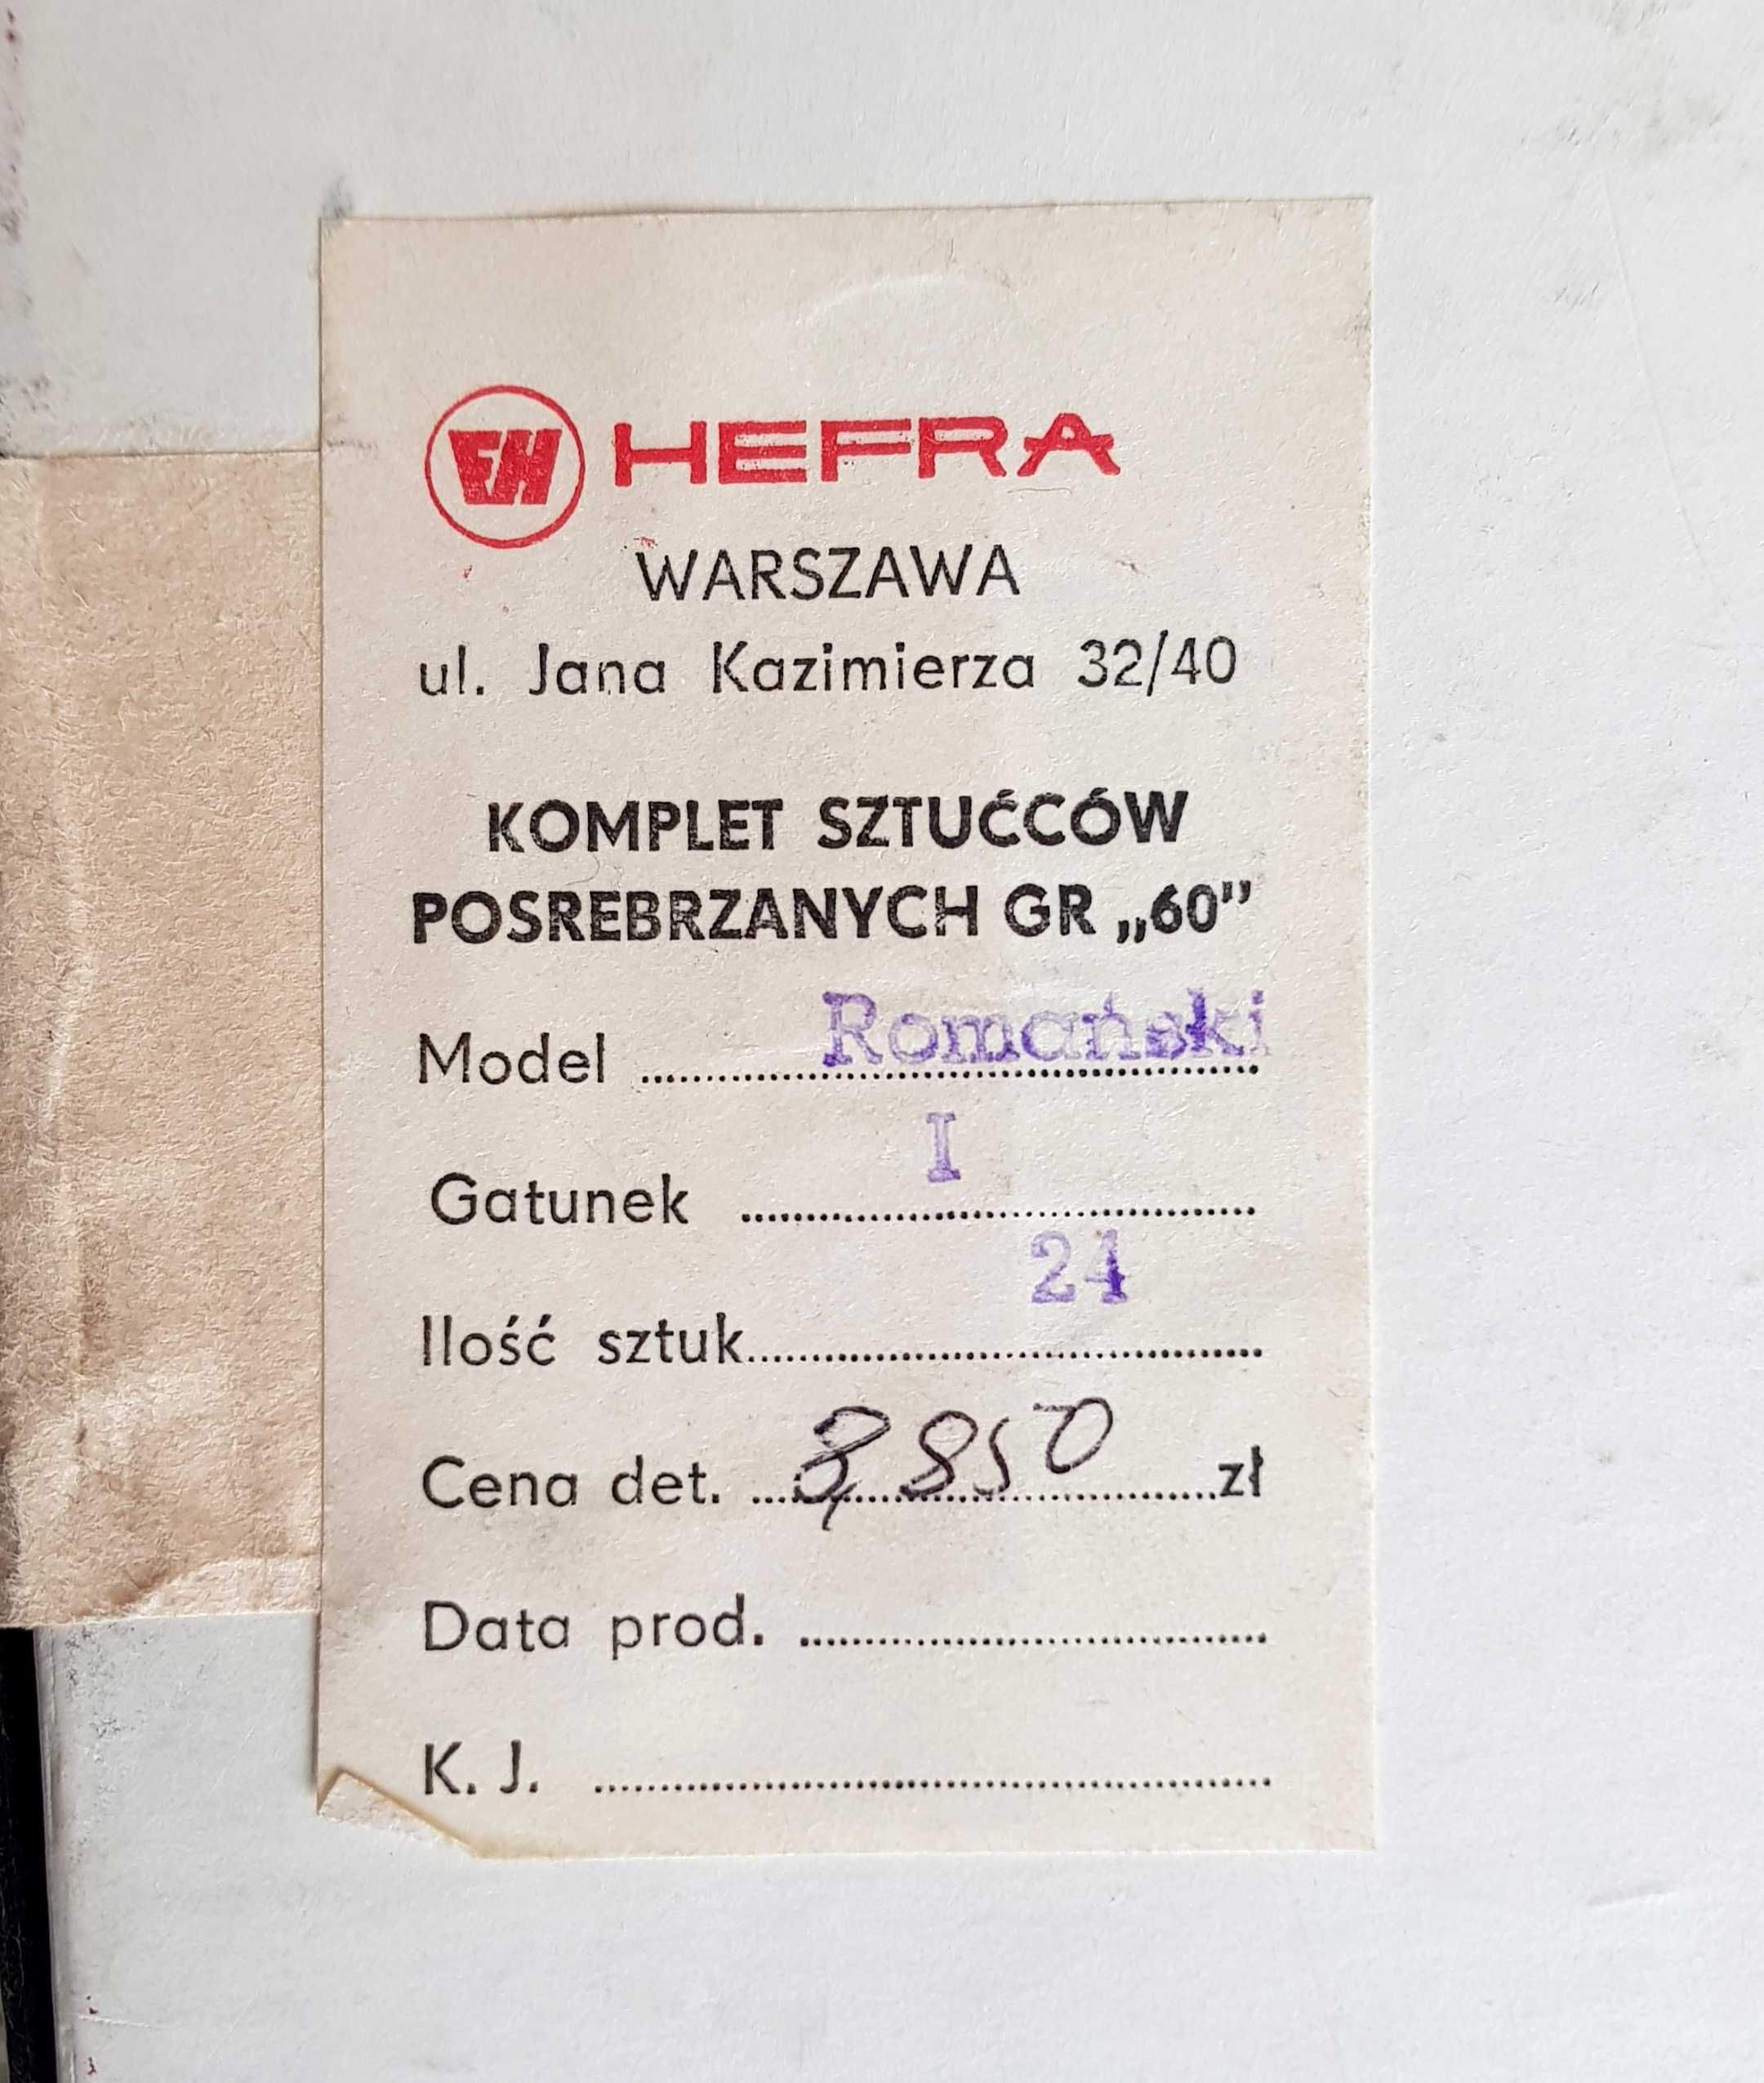 FH HEFRA
WARSZAWA
ul. Jana Kazimierza 32/40
KOMPLET SZTUĆCÓW
POSREBRZANYCH GR „60”
Model Romański
Gatunek I
Ilość sztuk 24
Cena det. zł
Data prod.
K. J.